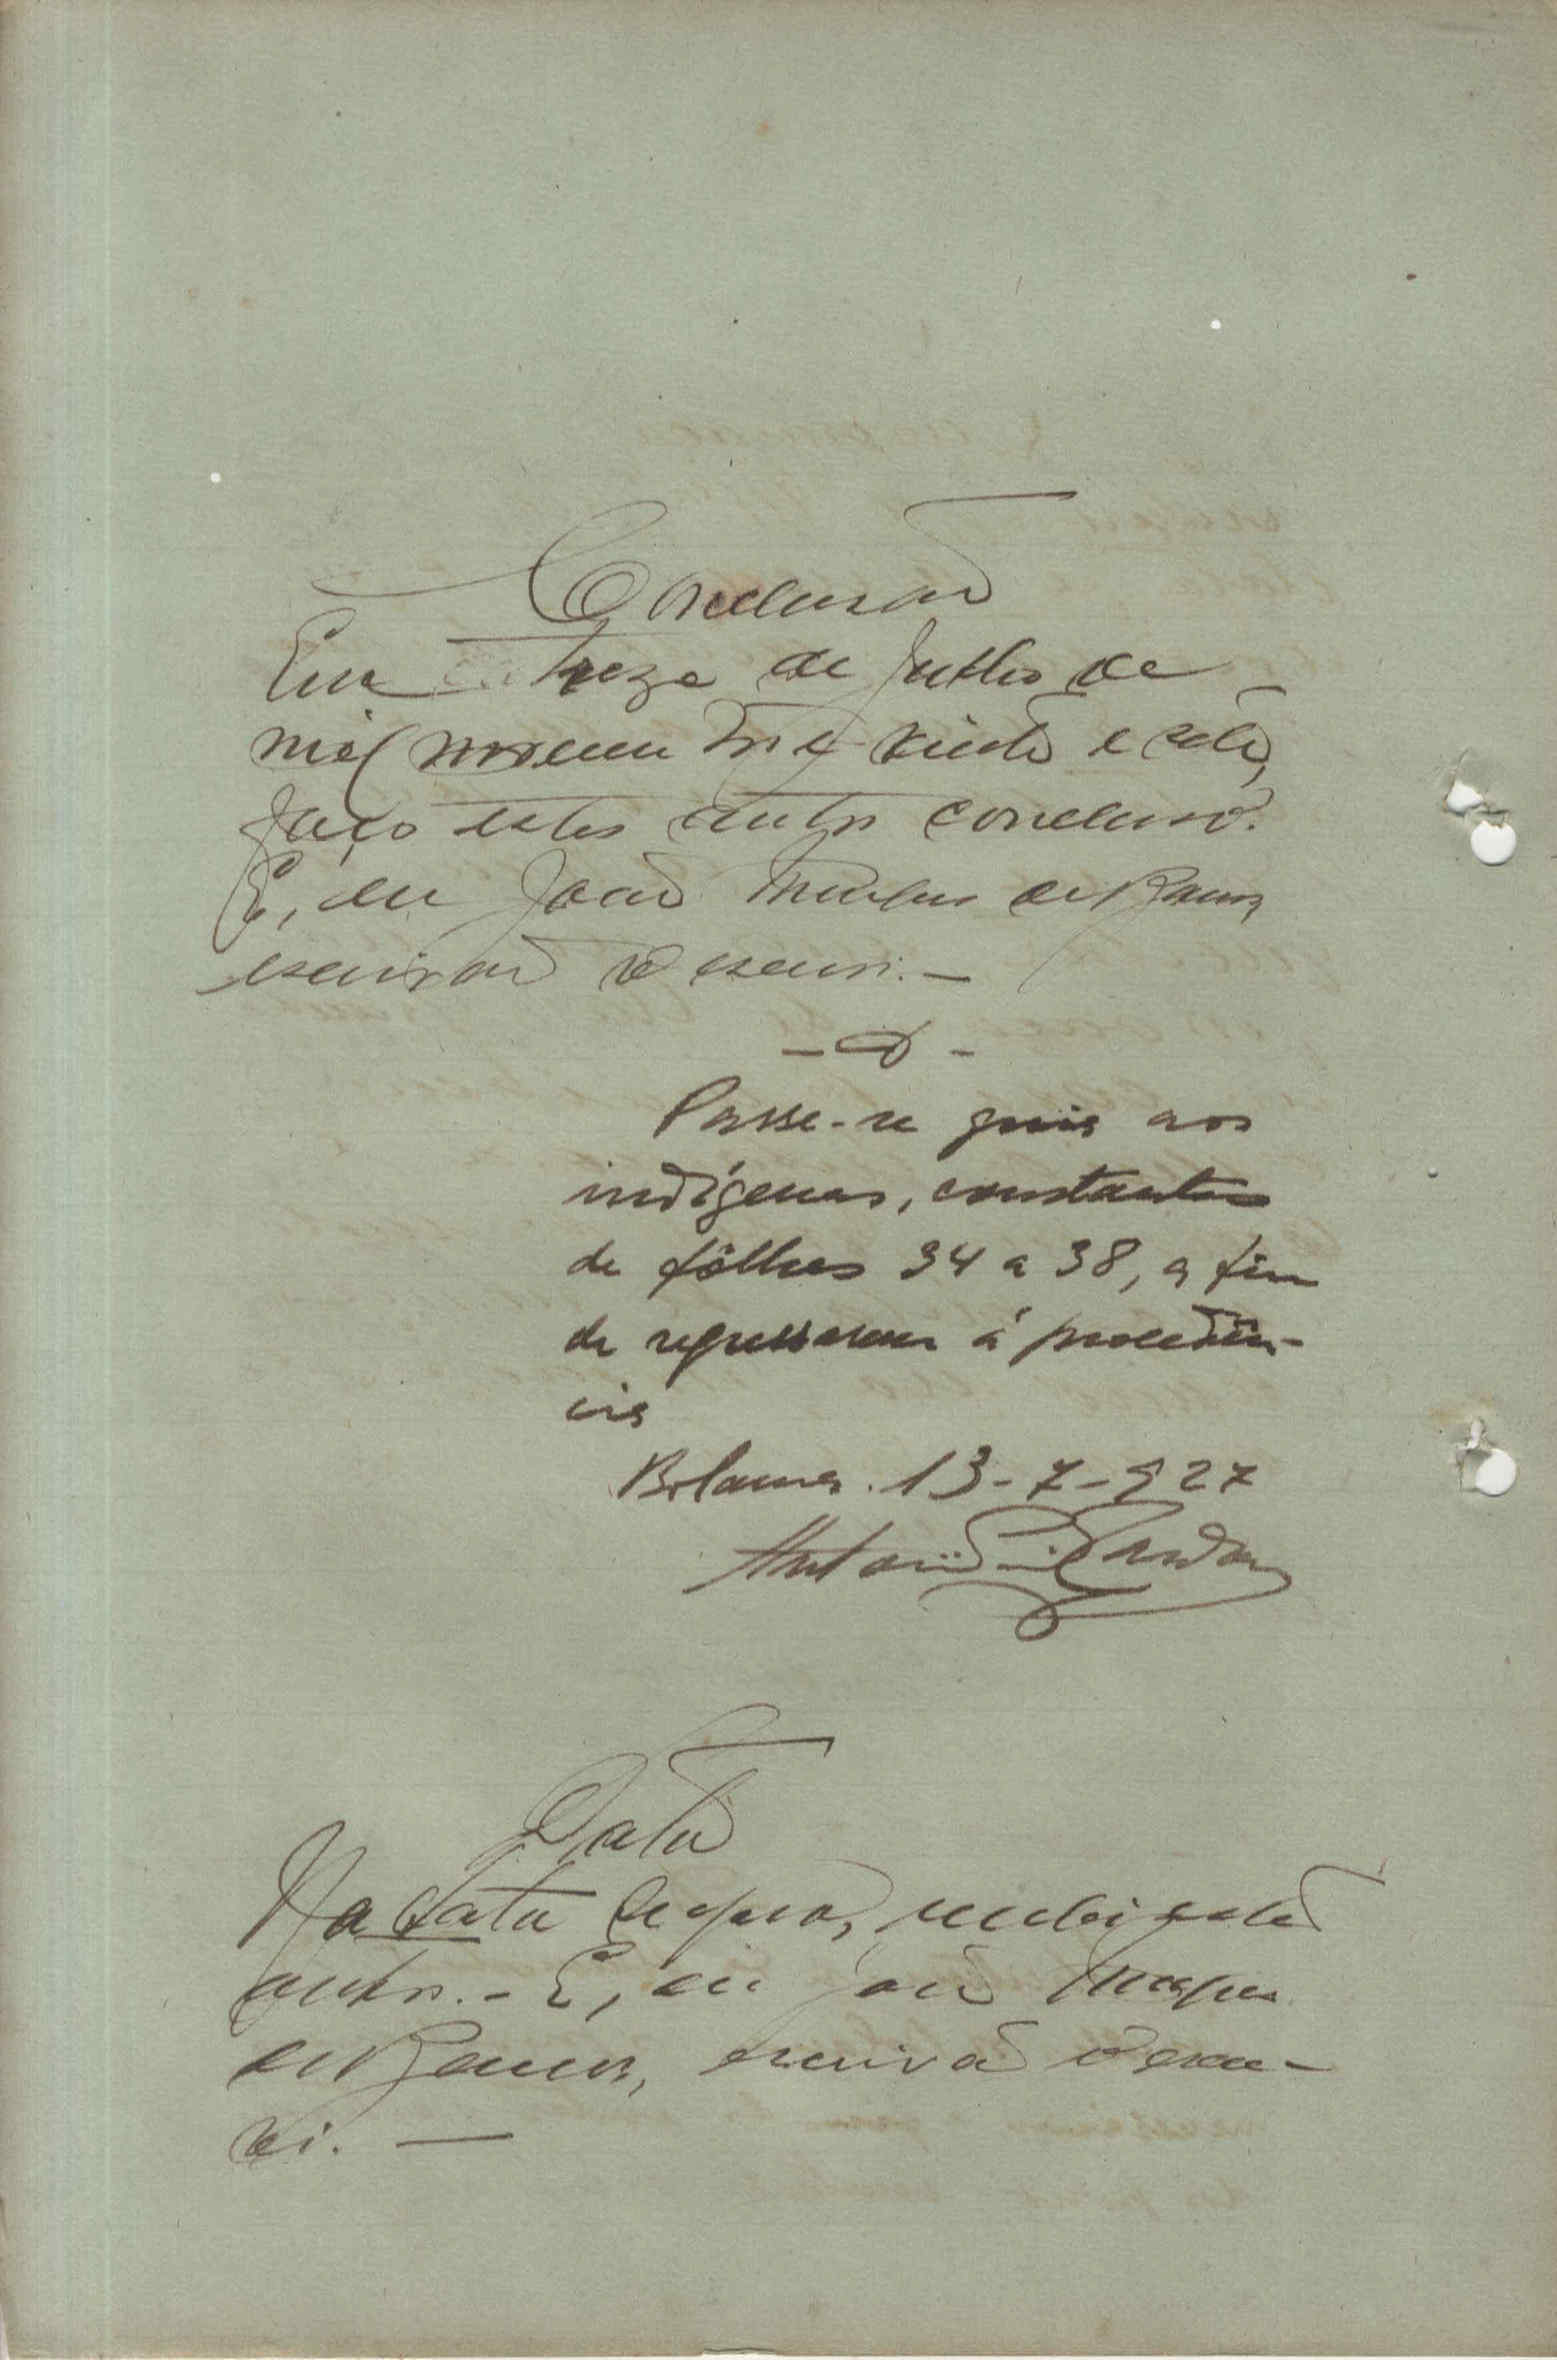 Conclusão
Em treze de Julho de
mil novecentos e vinte e sete,
faço estes autos conclusos.
E, eu João de Barros,
escrivão o escrevi. —
Passe-se guia aos
indígenas, constantes
de fôlhas 34 a 38, a fim
de regressarem á procedên-
cia
Bolama. 13-7-927
António
Data
Na data supra, recebi estes
autos. - E, eu João
de Barros, escrivão o escre-
vi. —